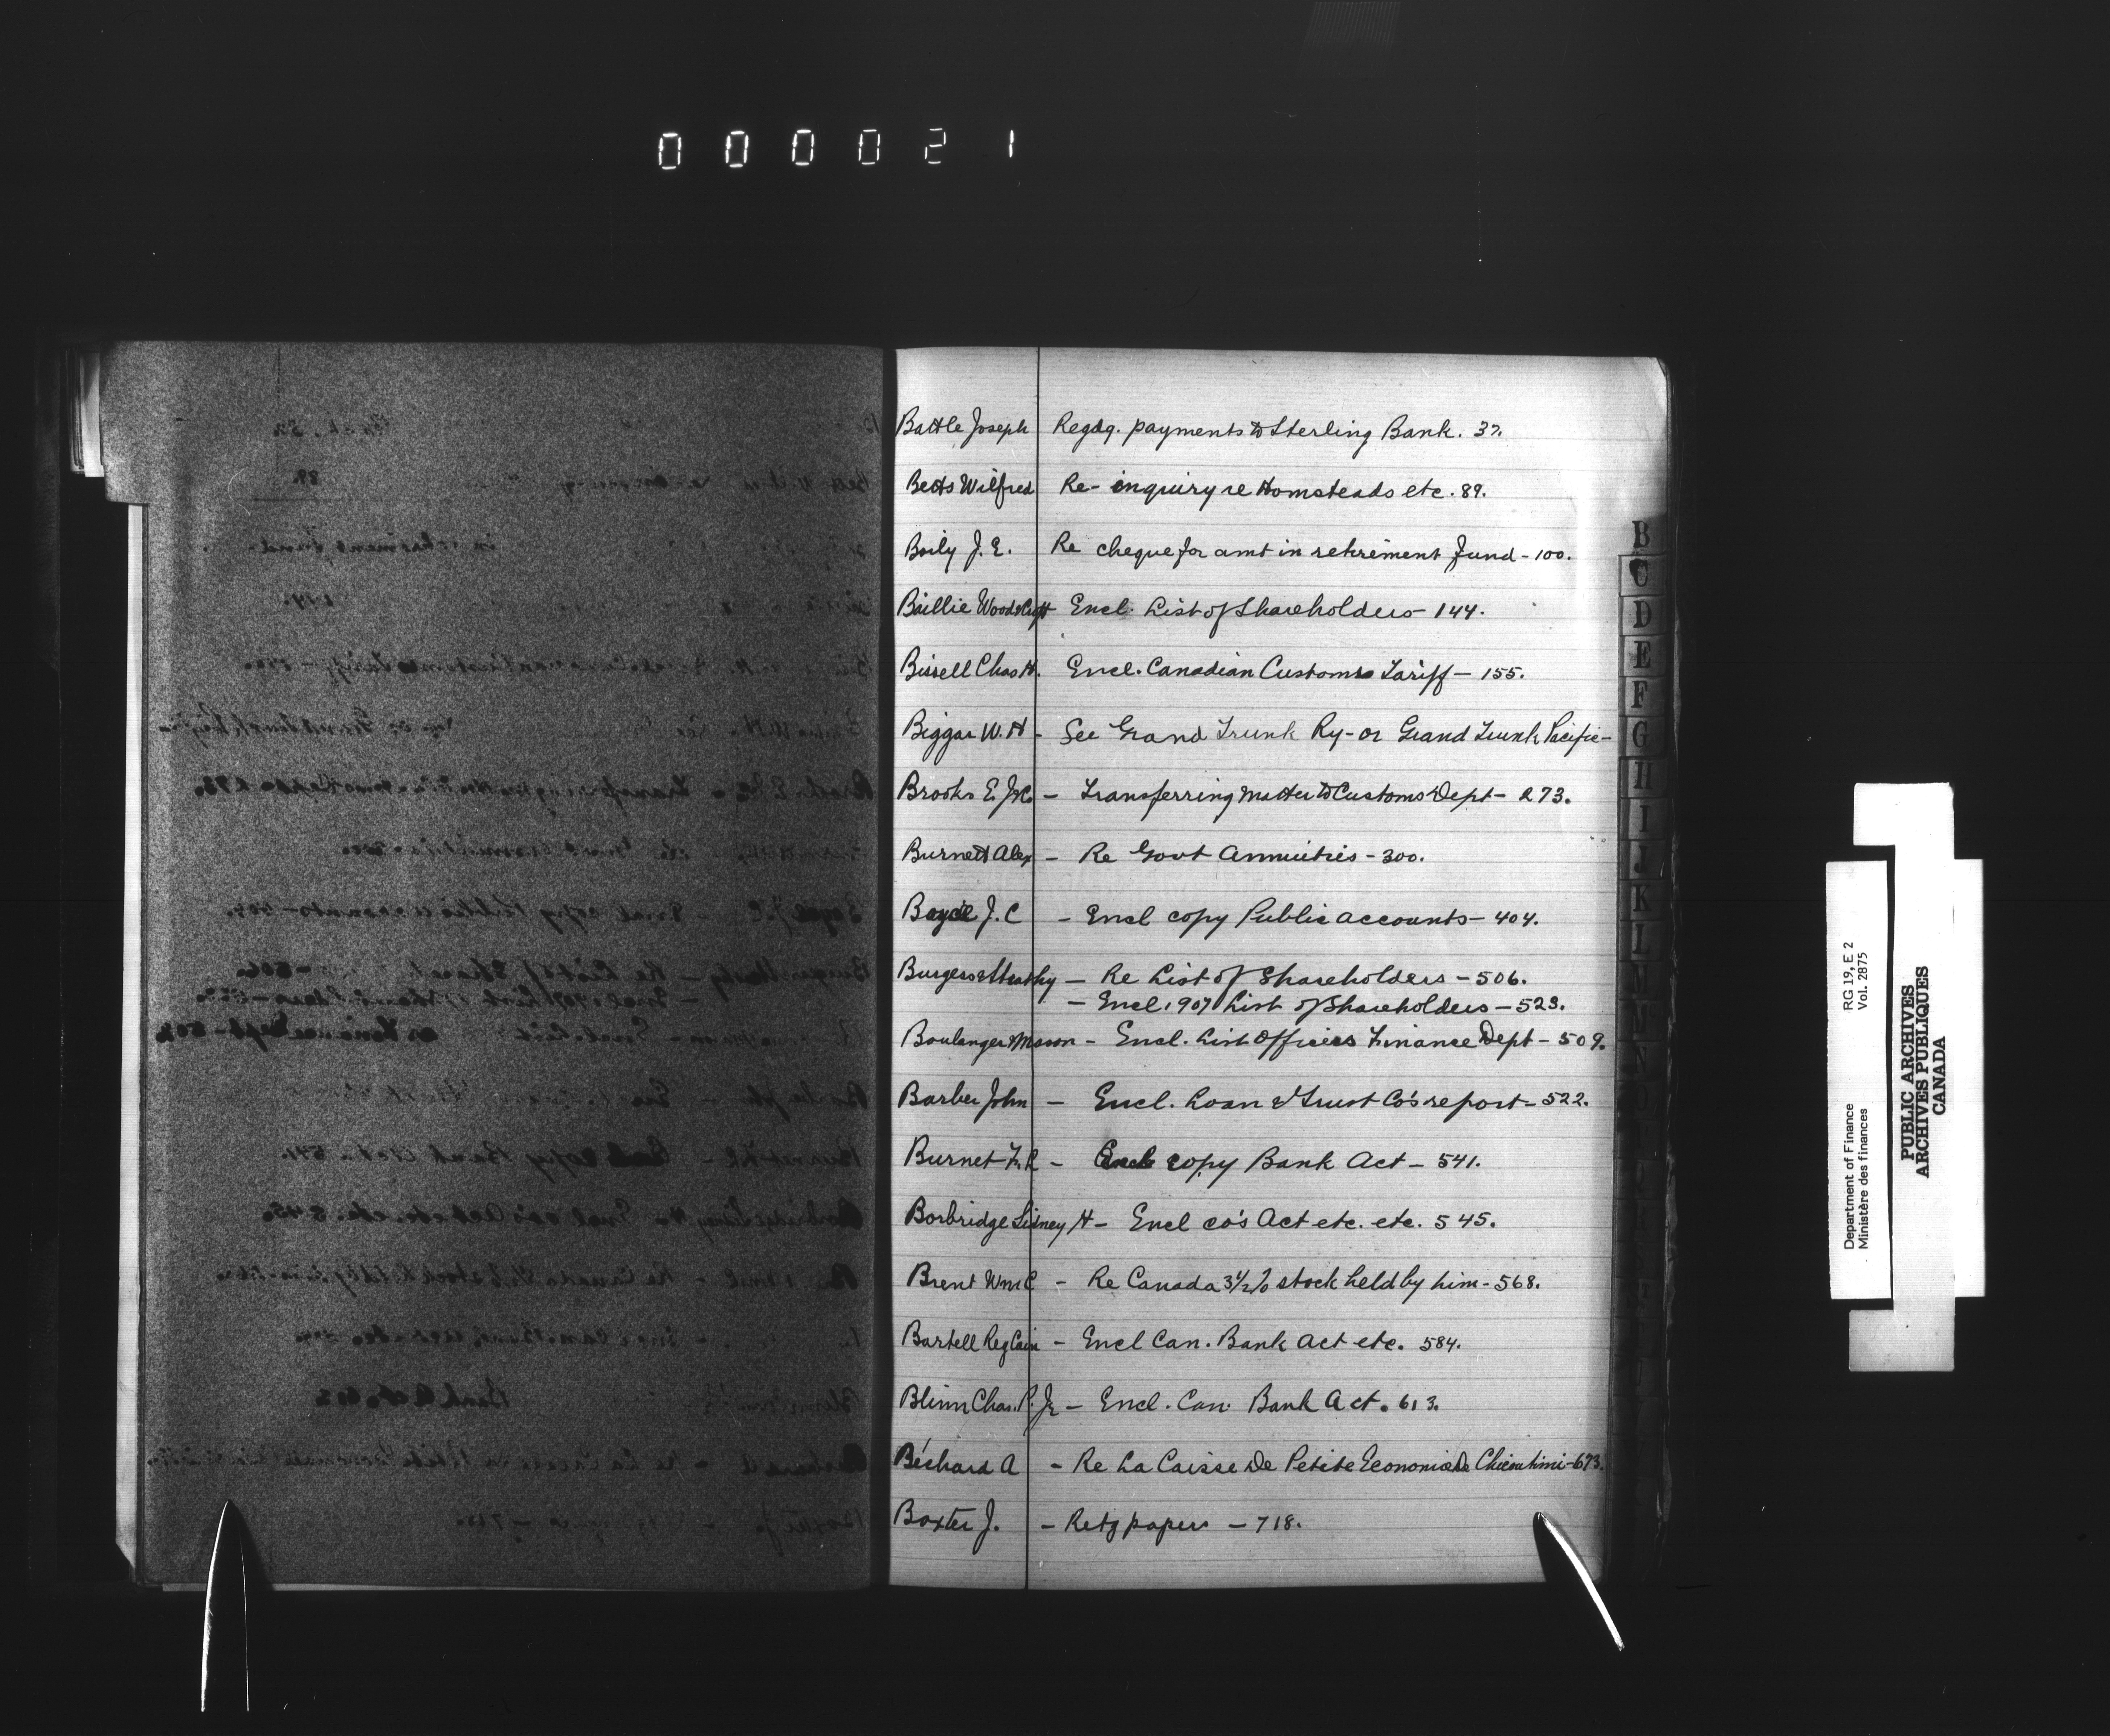 000021
Battle Joseph Regdg. payments to Sterling Bank. 37.
Betts Wilfred Re- inquiry re Homsteads etc. 89.
Boily J. E. Re cheque for amt in retirement fund - 100.
Baillie Wood & Encl. List of Shareholders - 144.
Bissell Chas H. Encl. Canadian Customs Tariff - 155.
Biggar W. H - See Grand Trunk Ry - or Grand Trunk Pacific -
Brooks E. - Transferring matter to Customs Dept - 273.
Burnett Alex - Re Govt Annuities - 300.
J. C - Encl copy Public accounts - 404.
Burgess & Strathy - Re List of Shareholders - 506.
- Encl. 1907 List of Shareholders - 523.
Boulanger & Mason - Encl. List Officers Finance Dept - 509.
Barber John - Encl. Loan & Trust Co's report - 522.
Burnet F. R - Encl copy Bank Act - 541.
Borbridge Sidney H - Encl co's Act etc. etc. 545.
Brent Wm C - Re Canada 3 1/2 % stock held by him - 568.
Bartell Reg Cain - Encl Can. Bank Act etc. 584.
Blinn Chas. P. Jr - Encl. Can. Bank Act. 613.
Béchard A - Re La Caisse De Petite Economie De Chicoutimi - 673.
Baxter J. - Retg papers - 718.
B
C
D
E
F
G
H
I
J
K
L
M
Department of Finance RG 19, E 2
Ministère des finances Vol. 2875
PUBLIC ARCHIVES
ARCHIVES PUBLIQUES
CANADA